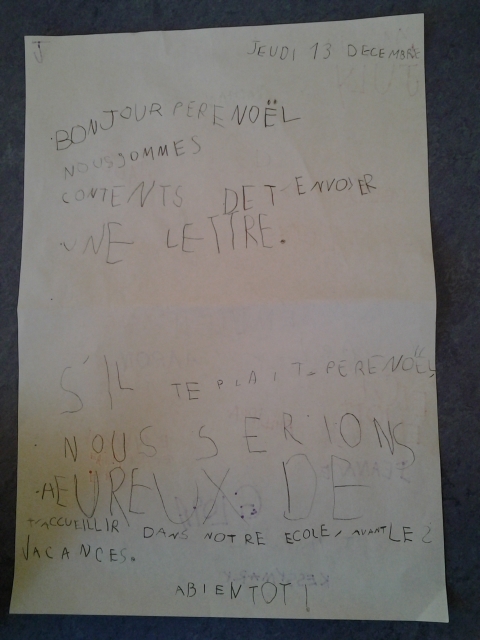 J
JEUDI 13 DECEMBRE
BONJOUR PERE NOËL
NOUS SOMMES
CONTENTS DE T ENVOYER
UNE LETTRE.
S'IL TE PLAIT PERE NOËL
NOUS SERIONS
HEUREUX DE
T'ACCUEILLIR DANS NOTRE ECOLE, AVANT LES
VACANCES.
ABIENTOT !